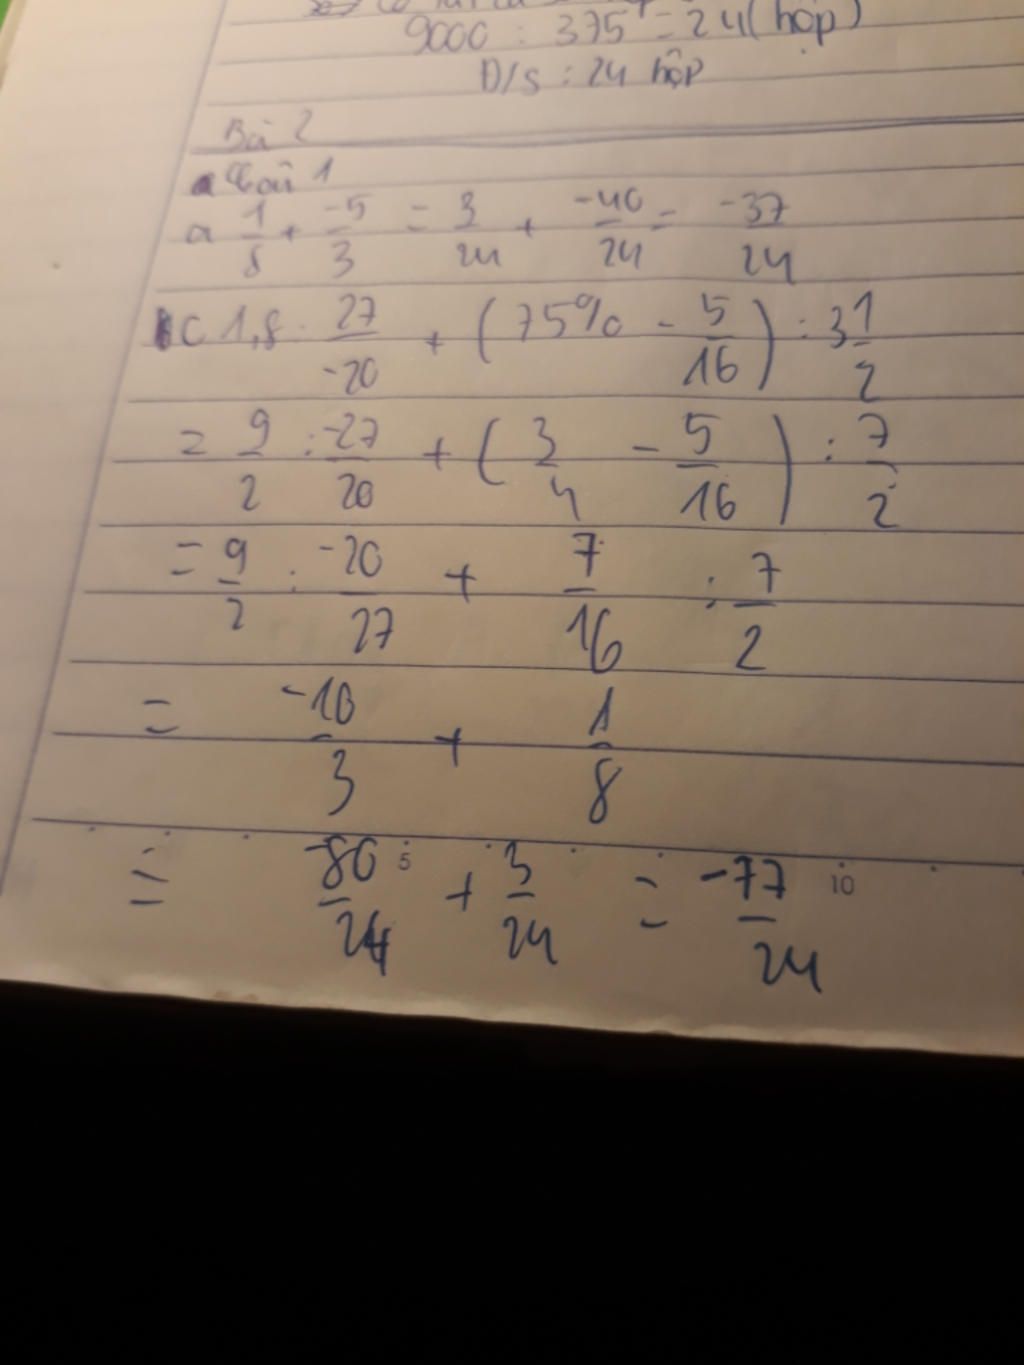 9000 : 375 = 24 (hộp)
Đ/s : 24 hộp
Bài 2
Câu 1
a 1/8 + -5/3 = 3/24 + -40/24 = -37/24
c 1,8 : 27/-20 + (75% - 5/16) : 3 1/2
= 9/2 : -27/20 + (3/4 - 5/16) : 7/2
= 9/2 : -20/27 + 7/16 : 7/2
= -10/3 + 1/8
= -80/24 + 3/24 = -77/24
5 10